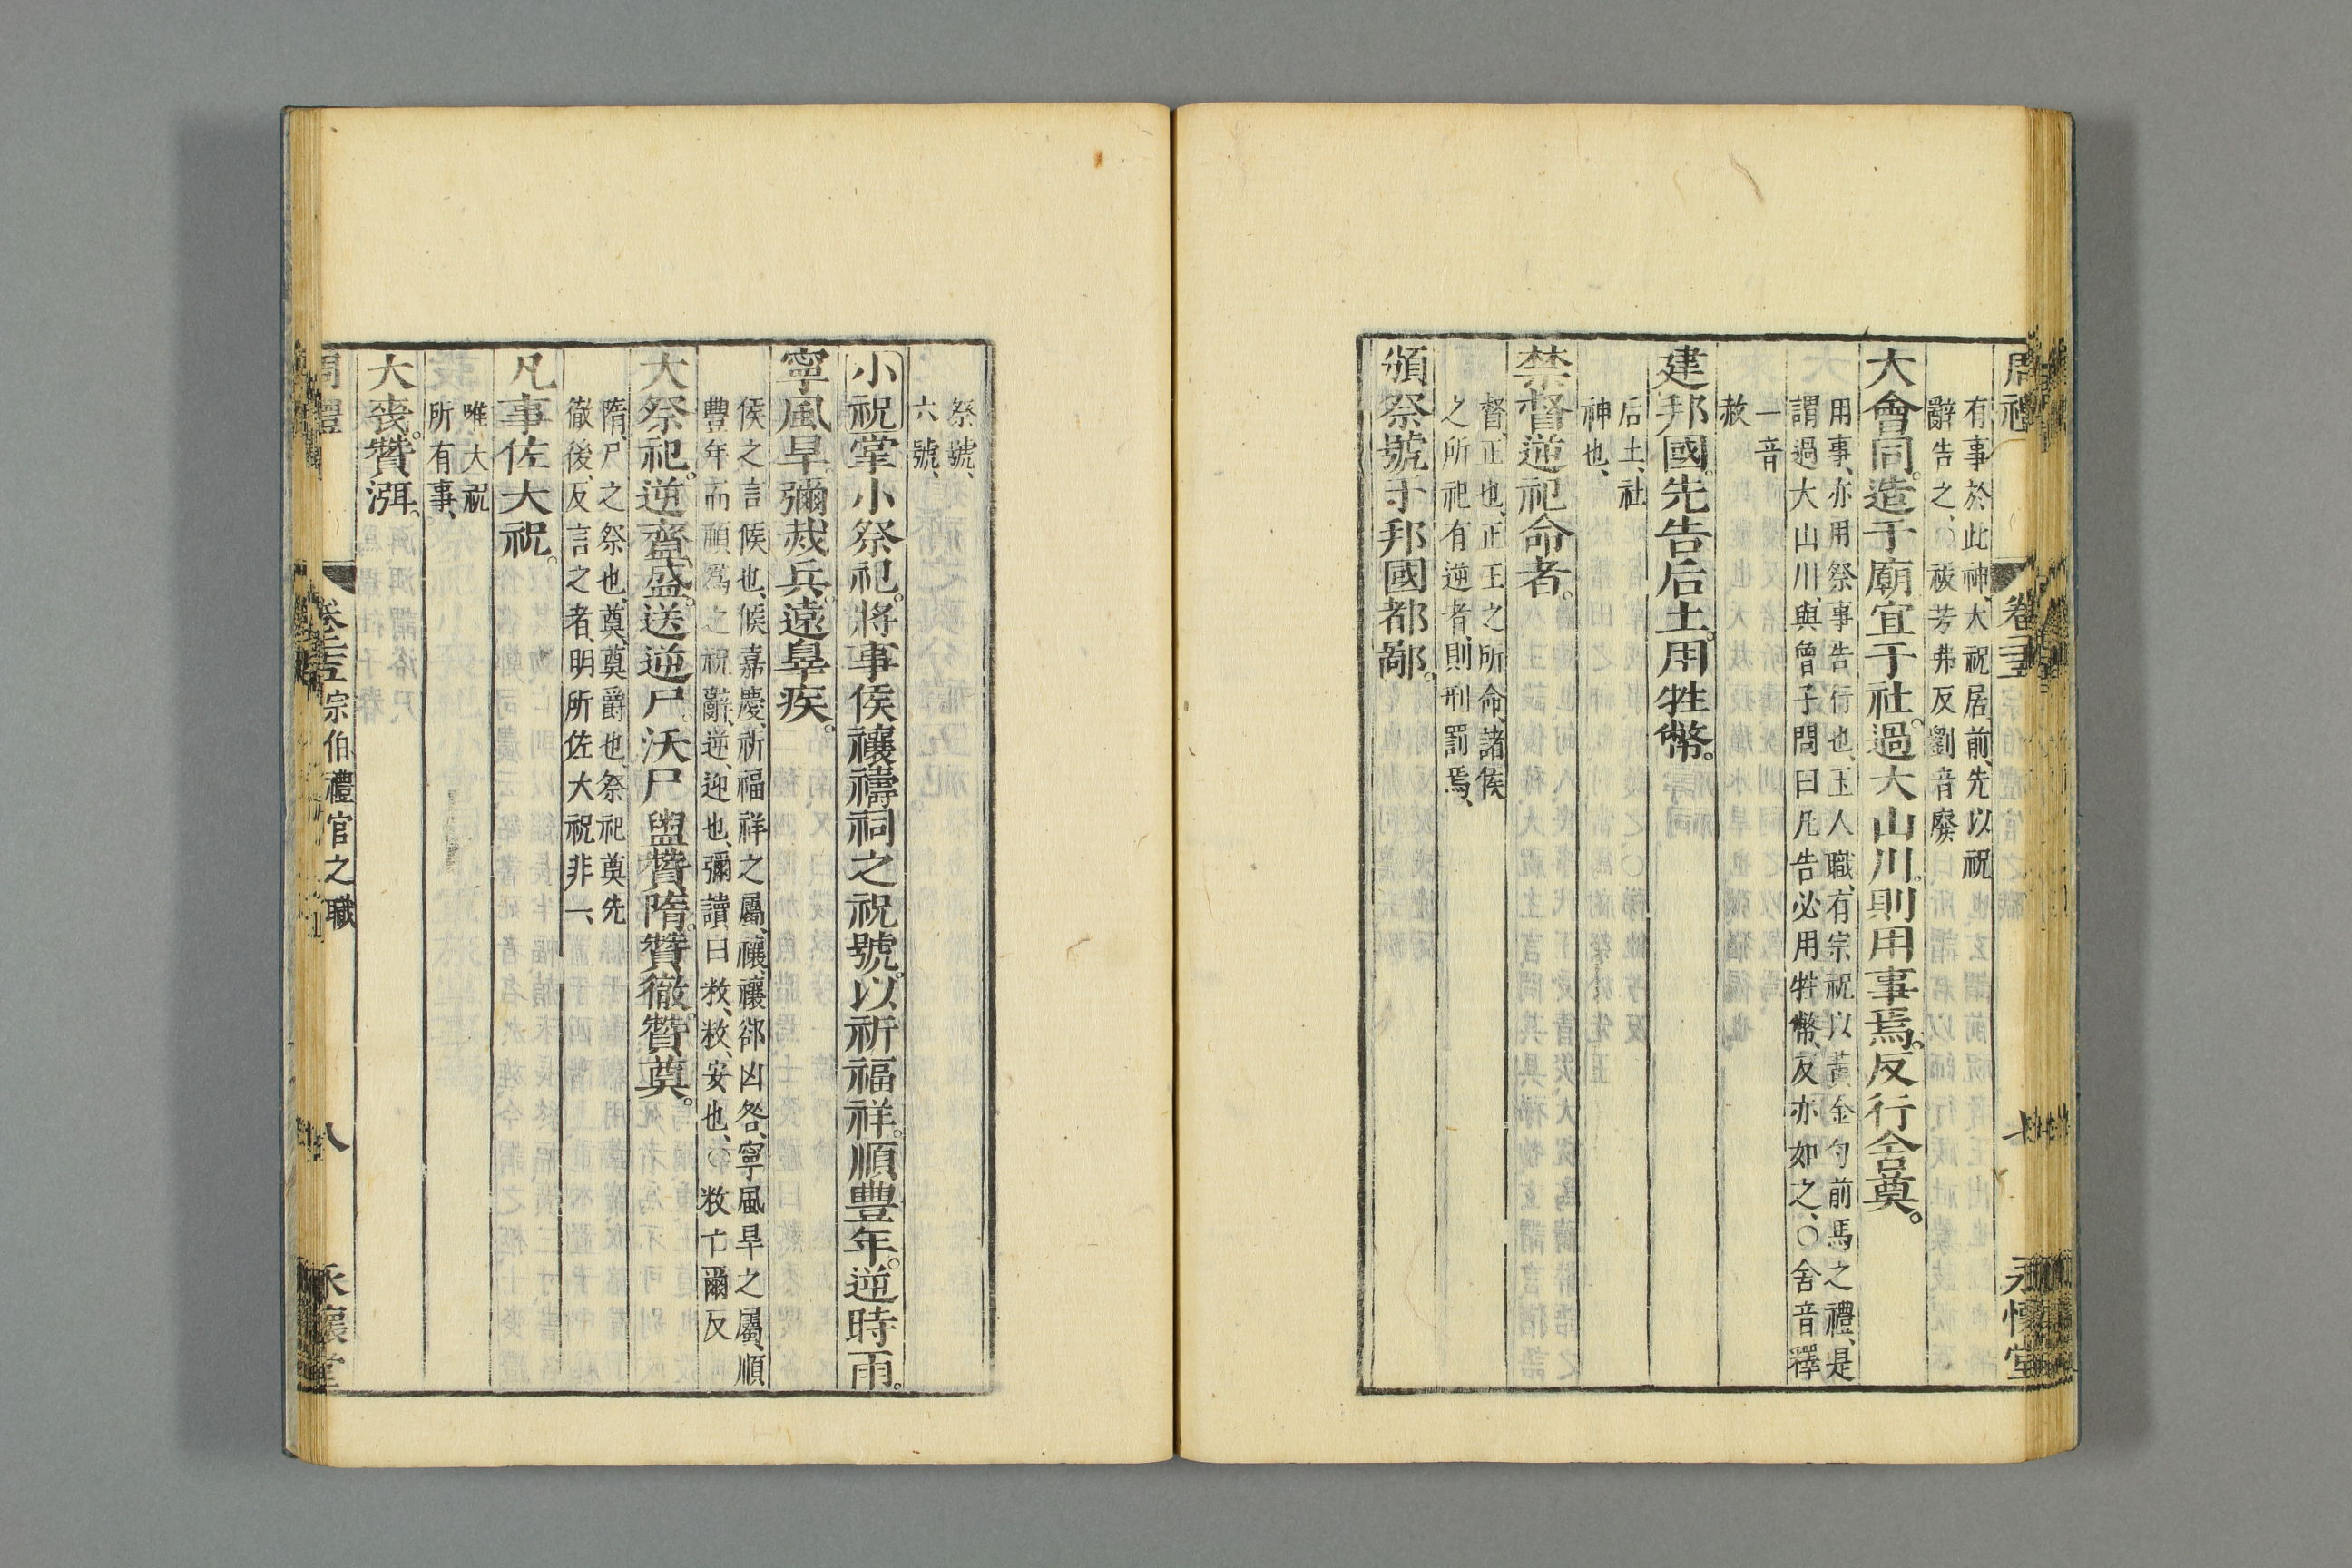 周禮 卷二十五 七 永懷堂
有事於此神、大祝居前、先以祝
辭告之、○祓芳弗反劉音廢
大會同。造于廟宜于社。過大山川。則用事焉。反行舍奠。
用事、亦用祭事告行也、玉人職、有宗祝以黃金勺前馬之禮、是
謂過大山川、與曾子問曰凡告必用牲幣、反亦如之、○舍音釋
一音
赦
建邦國。先告后土。用牲幣。
后土、社
神也、
禁督逆祀命者。
督、正也、正王之所命、諸侯
之所祀有逆者、則刑罰焉、
頒祭號于邦國都鄙。
祭號、
六號、
小祝掌小祭祀。將事侯禳禱祠之祝號。以祈福祥。順豐年。逆時雨。
寧風旱。彌烖兵。遠辠疾。
侯之言候也、候嘉慶、祈福祥之屬、禳、禳郤凶咎、寧風旱之屬、順
豐年而順爲之祝辭、逆、迎也、彌讀曰敉、敉、安也、○敉亡爾反
大祭祀。逆齍盛。送逆尸。沃尸盥贊隋。贊徹。贊奠。
隋、尸之祭也、奠、奠爵也、祭祀奠先
徹後、反言之者、明所佐大祝非一、
凡事佐大祝。
唯大祝
所有事、
大喪。贊渳。
周禮 卷二十五宗伯禮官之職 八 永懷堂